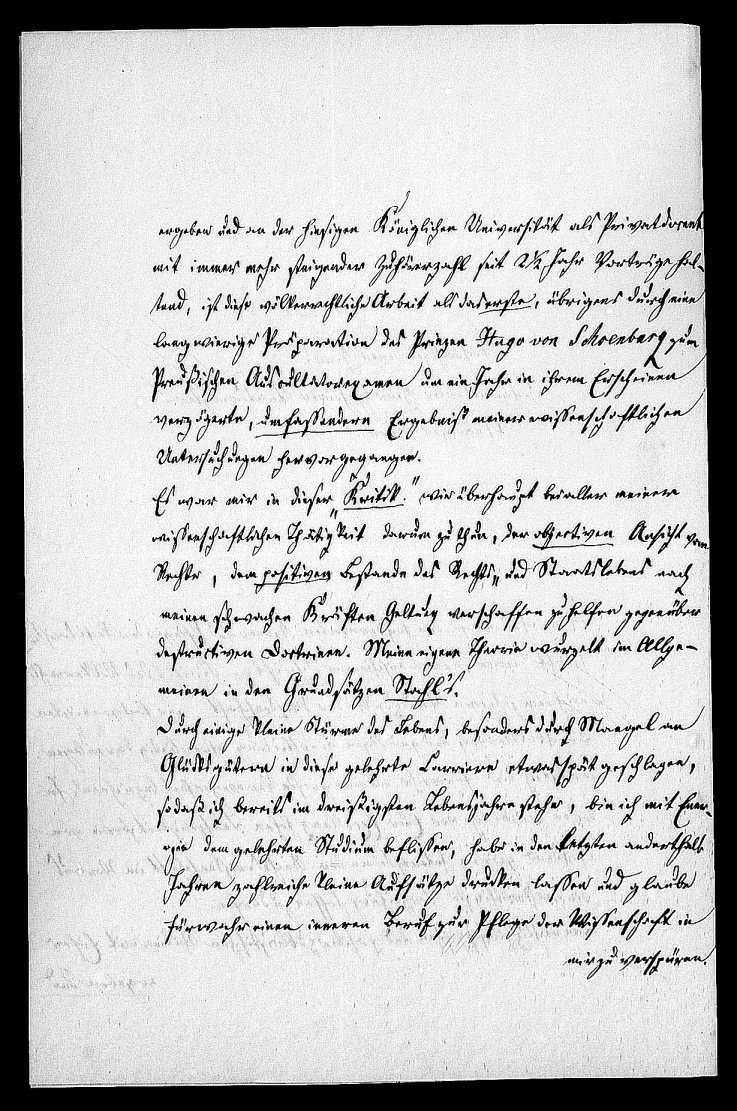 ergeben und an der hiesigen Königlichen Universität als Privatdocent
mit immer mehr steigender Zuhörerzahl seit 2½ Jahr Vorträge hal-
tend, ist diese völkerrechtliche Arbeit als das erste, übrigens durch eine
langwierige Präparation des Prinzen Hugo von Schoenburg zum
Preußischen Auscultatorexamen um ein Jahr in ihrem Erscheinen
verzögerte, umfassendere Ergebniß meiner wissenschaftlichen
Untersuchungen hervorgegangen.
Es war mir in dieser „Kritik“ wie überhaupt bei aller meiner
wissenschaftlichen Thätigkeit darum zu thun, der objectiven Ansicht vom
Rechte, dem positiven Bestande des Rechts- und Staatslebens nach
meinen schwachen Kräften Geltung verschaffen zu helfen gegenüber
destructiven Doctrinen. Meine eigene Theorie wurzelt im Allge-
meinen in den Grundsätzen Stahl's.
Durch einige kleine Stürme des Lebens, besonders durch Mangel an
Glücksgütern in diese gelehrte Carriere etwas spät geschlagen,
sodaß ich bereits im dreißigsten Lebensjahre stehe, bin ich mit Ener-
gie dem gelehrten Studium beflissen, habe in den letzten anderthalb
Jahren zahlreiche kleine Aufsätze drucken lassen und glaube
fürwahr einen inneren Beruf zur Pflege der Wissenschaft in
mir zu verspüren.